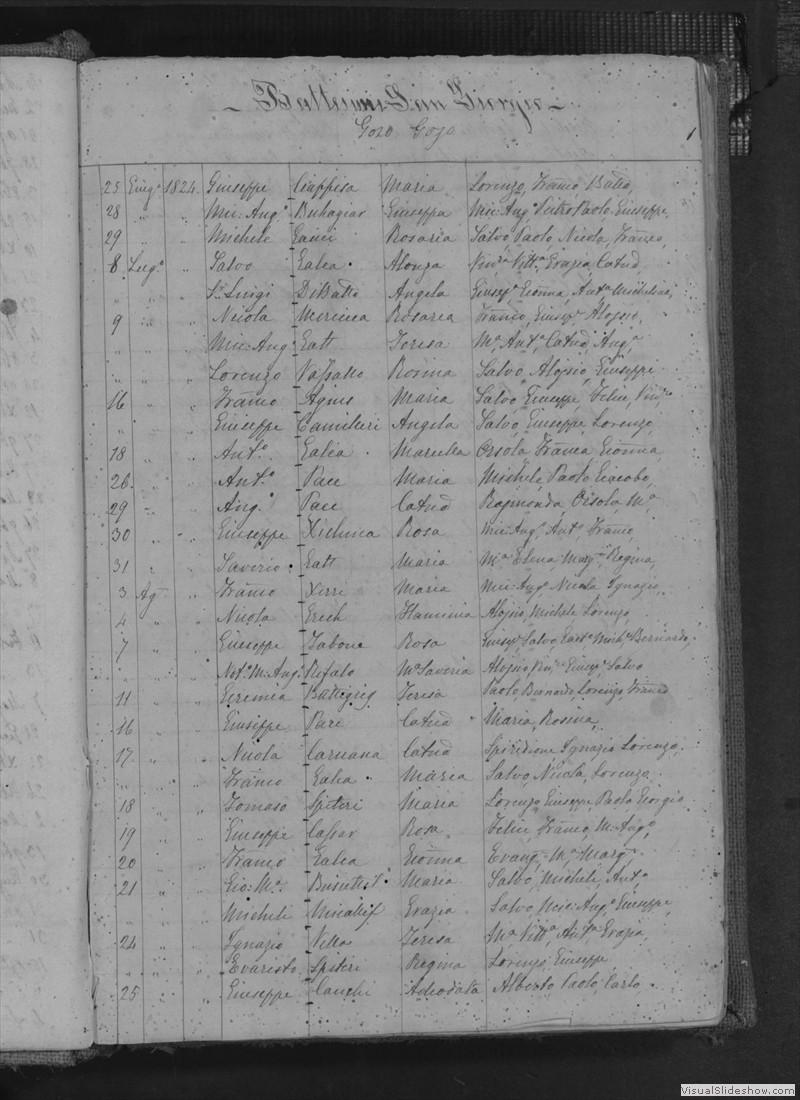 Battesimi San Giorgio
Gozo Gozo
1
25 Giug.o 1824. Giuseppe Maria Lorenzo, Franco
28 " " Mic: Ang.o Buhagiar Giuseppa Mic: Ang.o Pietro Paolo Giuseppe,
29 " " Michele Rosaria Salvo, Paolo, Nicola, Franco,
8 Lug.o " Salvo Galea Alonza Vitt.a Grazia, Catnd,
" " S.r Luigi DeBatto Angela Gius.e Gioanna, Ant.a
9 " " Nicola Mercieca Rosaria Franco, Gius.e Alojsio,
" " " Mic: Ang. Gatt Teresa M.a Ant.a Catnd, Ang.a
" " " Lorenzo Vassallo Rosina Salvo, Alojsio, Giuseppe
16 " " Franco Agius Maria Salvo, Giuseppe, Felice,
" " " Giuseppe Camilleri Angela Salvo, Giuseppe, Lorenzo,
18 " " Ant.o Galea Marcella Orsola, Franca, Gioanna
26 " " Ant.o Pace Maria Michele, Paolo, Giacobo,
29 " " Ang.o Pace Catnd Rajmonda, Orsola, M.a
30 " " Giuseppe Xicluna Rosa Mic: Ang.o, Ant.o, Franco,
31 " " Saverio Gatt Maria M.a Elena, Marg.a Regina,
3 Ag " Franco Xerri Maria Mic: Ang.o Nicola Ignazio
4 " " Nicola Grech Flaminia Alojsio, Michele Lorenzo,
7 " " Giuseppe Tabone Rosa Gius.e Salvo, Mich.e Bernardo,
" " " Not.o M. Ang.o Refalo M.a Saveria Alojsio, Gius.e Salvo
11 " " Geremia Buttigieg Teresa Paolo Bernardo, Lorenzo, Franco
16 " " Giuseppe Pace Catnd Maria, Rosina,
17 " " Nicola Caruana Catnd Spiridione Ignazio Lorenzo,
" " " Franco Galea Maria Salvo, Nicola, Lorenzo
18 " " Tomaso Spiteri Maria Lorenzo, Giuseppe Paolo Giorgio
19 " " Giuseppe Cassar Rosa Felice, Franco, M: Ang.o
20 " " Franco Galea Gioanna Evang. M.a Marg.a
21 " " Gio: M.a Busuttil Maria Salvo, Michele, Ant.o
" " Michele Micallef Grazia Salvo, Mic: Ang.o Giuseppe,
24 " " Ignazio Vella Teresa M.a Vitt.a Ant.a Grazia,
" " " Evaristo Spiteri Regina Lorenzo, Giuseppe
25 " " Giuseppe Cauchi Adeodata Alberto, Paolo, Carlo
VisualSlideshow.com